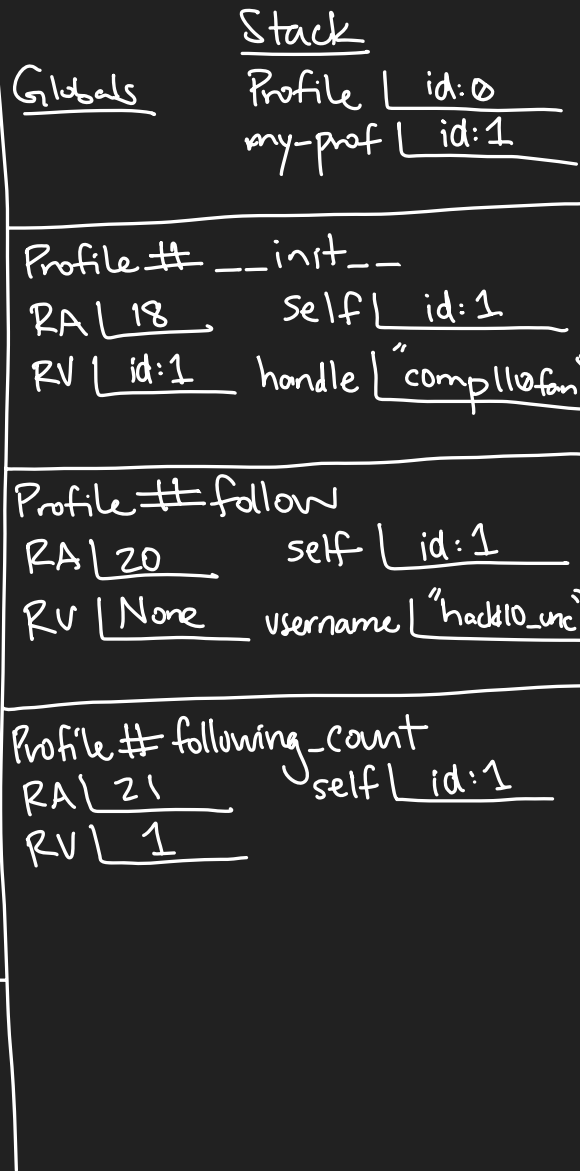 Stack
Globals
Profile id:0
my-prof id:1
Profile# __init__
RA 18 self id:1
RV id:1 handle "comp110fan"
Profile#follow
RA 20 self id:1
RV None username "hack110_unc"
Profile#following_count
RA 21 self id:1
RV 1